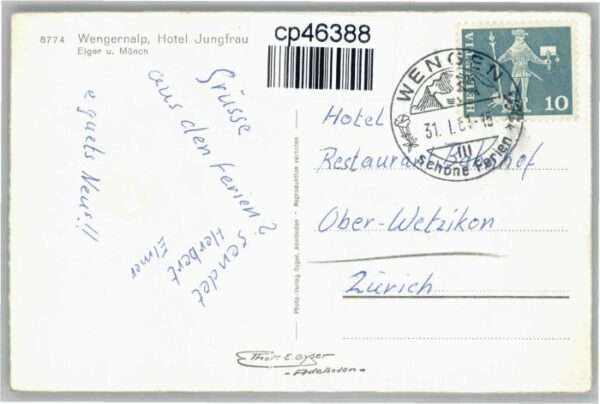 8774 Wengernalp, Hotel Jungfrau
Eiger u. Mönch
cp46388
HELVETIA
10
WENGEN
31. I. 61-15
Schöne Ferien
Grüsse
aus den Ferien
sendet
Herbert
Elmer
e guets Neus!!
Hotel
Restaurant Bahnhof
Ober-Wetzikon
Zürich
Photo-Verlag Gyger, Adelboden - Reproduktion verboten
Thor E. Gyger
- Adelboden -